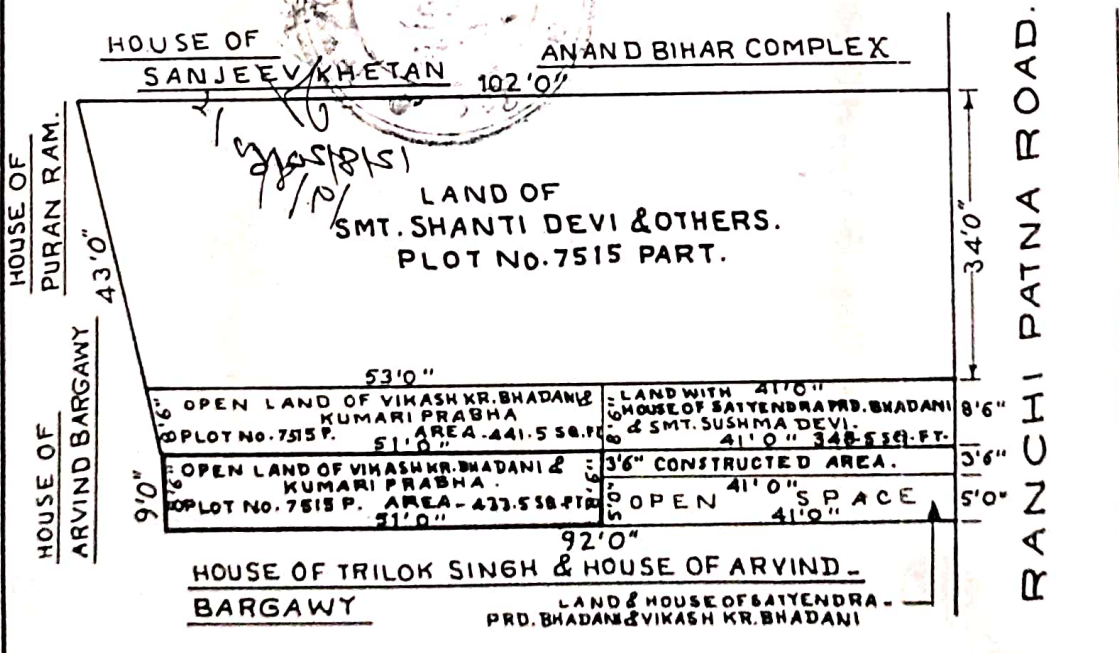 HOUSE OF
SANJEEV KHETAN
ANAND BIHAR COMPLEX
102'0"
HOUSE OF
PURAN RAM.
43'0"
LAND OF
SMT. SHANTI DEVI & OTHERS.
PLOT NO. 7515 PART.
34'0"
RANCHI PATNA ROAD.
HOUSE OF
ARVIND BARGAWY
9'0"
53'0"
8'6" OPEN LAND OF VIKASH KR. BHADANI &
KUMARI PRABHA
PLOT NO. 7515 P. AREA - 441.5 SQ. FT
51'0"
41'0"
8'6" LAND WITH
HOUSE OF SATYENDRA PRD. BHADANI
& SMT. SUSHMA DEVI.
41'0" 348.5 SQ. FT.
8'6"
8'6" OPEN LAND OF VIKASH KR. BHADANI &
KUMARI PRABHA.
PLOT NO. 7515 P. AREA - 433.5 SQ. FT
51'0"
8'6"
3'6" CONSTRUCTED AREA.
3'6"
41'0"
5'0" OPEN SPACE
41'0"
5'0"
92'0"
HOUSE OF TRILOK SINGH & HOUSE OF ARVIND -
BARGAWY
LAND & HOUSE OF SATYENDRA -
PRD. BHADANI & VIKASH KR. BHADANI